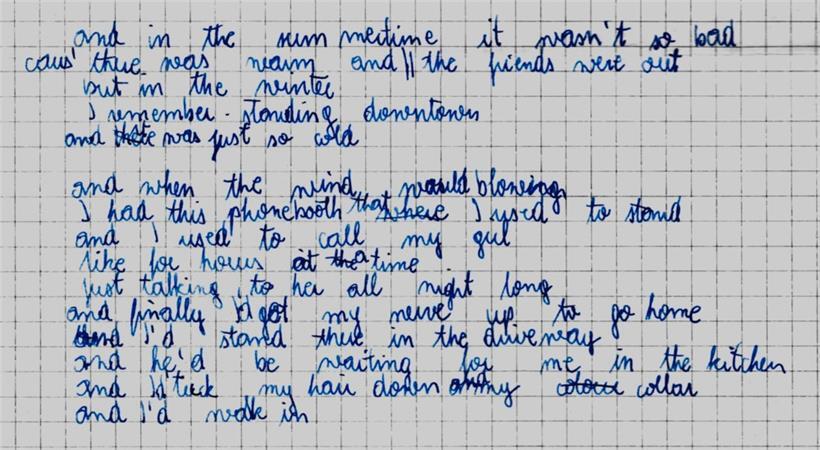 and in the summertime it wasn't so bad
caus' there was warm and || the friends were out
but in the winter
I remember standing downtown
and there was just so cold
and when the wind would blowing
I had this phonebooth that where I used to stand
and I used to call my gurl
like for hours at the a time
just talking to her all night long
and finally I'd got my nerve up to go home
and I'd stand there in the driveway
and he'd be waiting for me in the kitchen
and I'd tuck my hair down my colour collar
and I'd walk in